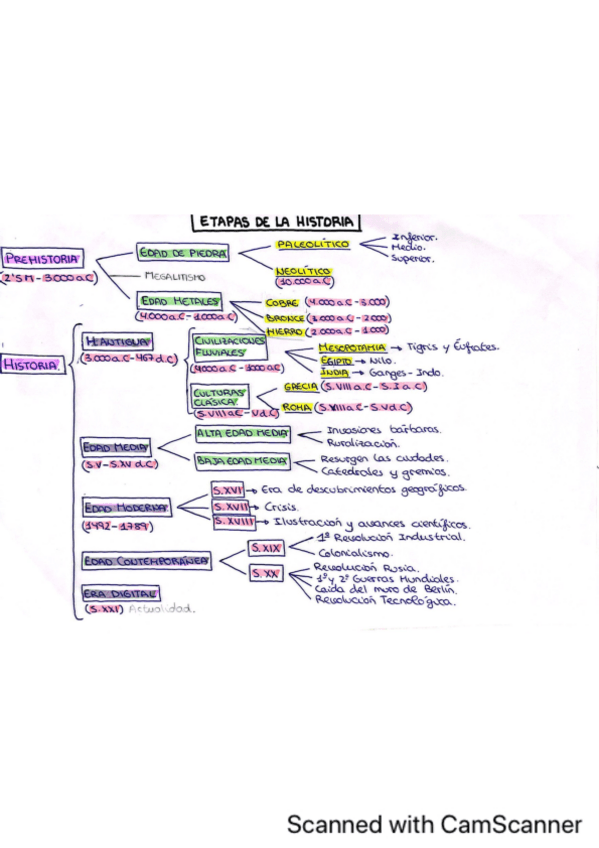 ETAPAS DE LA HISTORIA
PREHISTORIA
(2'5M - 3000 a.C)
EDAD DE PIEDRA
PALEOLÍTICO
Inferior.
Medio.
Superior.
NEOLÍTICO
(10.000 a.C)
MEGALITISMO
EDAD METALES
(4.000 a.C - 1000 a.C)
COBRE (4.000 a.C - 3.000)
BRONCE (3.000 a.C - 2.000)
HIERRO (2.000 a.C - 1.000)
HISTORIA.
H. ANTIGUA
(3.000 a.C - 467 d.C)
CIVILIZACIONES
FLUVIALES
(4000 a.C - 3000 a.C)
MESOPOTAMIA → Tigris y Éufrates.
EGIPTO → Nilo.
INDIA → Ganges - Indo.
CULTURAS
CLÁSICA
(S.VIII a.C - V d.C)
GRECIA (S.VIII a.C - S.I a.C)
ROMA (S.VIII a.C - S.V d.C)
EDAD MEDIA
(S.V - S.XV d.C)
ALTA EDAD MEDIA
Invasiones bárbaras.
Ruralización.
BAJA EDAD MEDIA
Resurgen las ciudades.
Catedrales y gremios.
EDAD MODERNA
(1492 - 1789)
S.XVI → Era de descubrimientos geográficos.
S.XVII → Crisis.
S.XVIII → Ilustración y avances científicos.
EDAD CONTEMPORÁNEA
S.XIX
1ª Revolución Industrial.
Colonialismo.
S.XX
Revolución Rusia.
1ª y 2ª Guerras Mundiales.
Caída del muro de Berlín.
Revolución Tecnológica.
ERA DIGITAL
(S.XXI) Actualidad.
Scanned with CamScanner